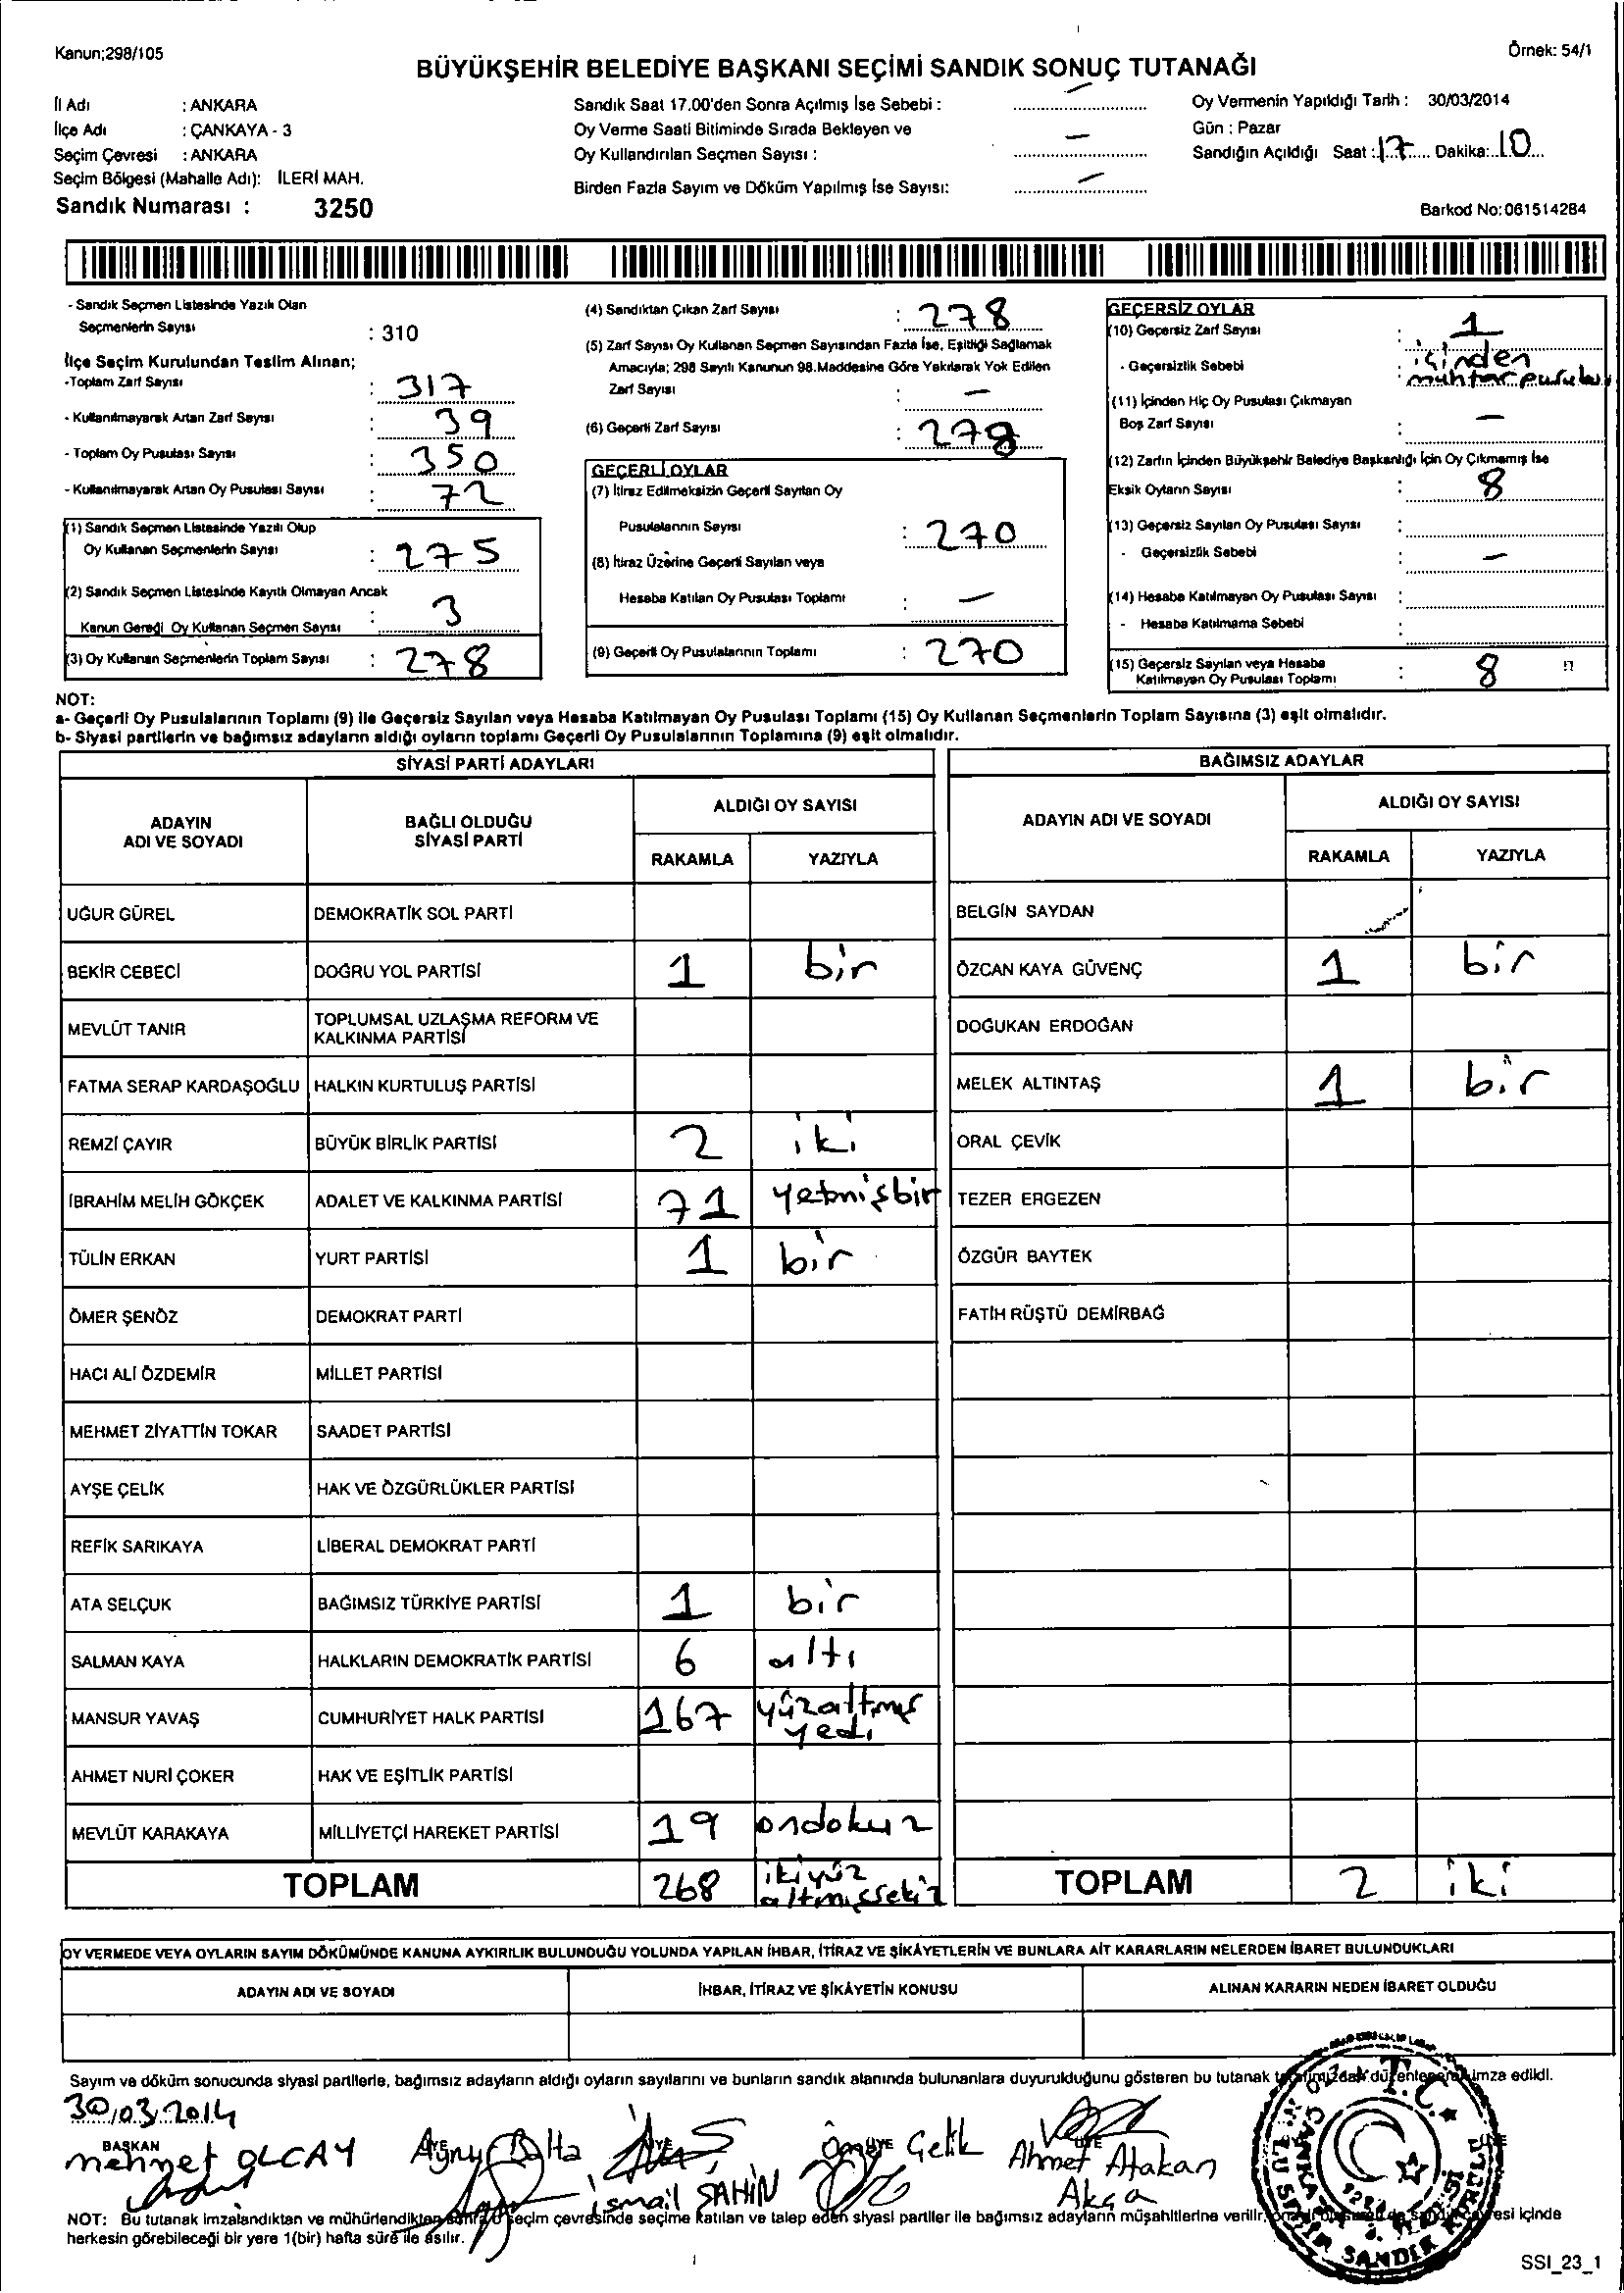 Kanun;298/105
Örnek: 54/1
BÜYÜKŞEHİR BELEDİYE BAŞKANI SEÇİMİ SANDIK SONUÇ TUTANAĞI
İl Adı : ANKARA
İlçe Adı : ÇANKAYA - 3
Seçim Çevresi : ANKARA
Seçim Bölgesi (Mahalle Adı): İLERİ MAH.
Sandık Numarası : 3250
Sandık Saat 17.00'den Sonra Açılmış İse Sebebi : —
Oy Verme Saati Bitiminde Sırada Bekleyen ve
Oy Kullandırılan Seçmen Sayısı : —
Birden Fazla Sayım ve Döküm Yapılmış İse Sayısı: —
Oy Vermenin Yapıldığı Tarih : 30/03/2014
Gün : Pazar
Sandığın Açıldığı Saat : 17 Dakika: 10
Barkod No:061514284
- Sandık Seçmen Listesinde Yazılı Olan
Seçmenlerin Sayısı : 310
İlçe Seçim Kurulundan Teslim Alınan;
-Toplam Zarf Sayısı : 317
- Kullanılmayarak Artan Zarf Sayısı : 39
- Toplam Oy Pusulası Sayısı : 350
- Kullanılmayarak Artan Oy Pusulası Sayısı : 72
(1) Sandık Seçmen Listesinde Yazılı Olup
Oy Kullanan Seçmenlerin Sayısı : 275
(2) Sandık Seçmen Listesinde Kayıtlı Olmayan Ancak
Kanun Gereği Oy Kullanan Seçmen Sayısı : 3
(3) Oy Kullanan Seçmenlerin Toplam Sayısı : 278
(4) Sandıktan Çıkan Zarf Sayısı : 278
(5) Zarf Sayısı Oy Kullanan Seçmen Sayısından Fazla İse, Eşitliği Sağlamak
Amacıyla; 298 Sayılı Kanunun 98.Maddesine Göre Yakılarak Yok Edilen
Zarf Sayısı : —
(6) Geçerli Zarf Sayısı : 278
GEÇERLİ OYLAR
(7) İtiraz Edilmeksizin Geçerli Sayılan Oy
Pusulalarının Sayısı : 270
(8) İtiraz Üzerine Geçerli Sayılan veya
Hesaba Katılan Oy Pusulası Toplamı : —
(9) Geçerli Oy Pusulalarının Toplamı : 270
GEÇERSİZ OYLAR
(10) Geçersiz Zarf Sayısı : 1
- Geçersizlik Sebebi : içinden
muhtar pusulası
(11) İçinden Hiç Oy Pusulası Çıkmayan
Boş Zarf Sayısı : —
(12) Zarfın İçinden Büyükşehir Belediye Başkanlığı İçin Oy Çıkmamış İse
Eksik Oyların Sayısı : 8
(13) Geçersiz Sayılan Oy Pusulası Sayısı :
- Geçersizlik Sebebi : —
(14) Hesaba Katılmayan Oy Pusulası Sayısı :
- Hesaba Katılmama Sebebi :
(15) Geçersiz Sayılan veya Hesaba
Katılmayan Oy Pusulası Toplamı : 8
NOT:
a- Geçerli Oy Pusulalarının Toplamı (9) ile Geçersiz Sayılan veya Hesaba Katılmayan Oy Pusulası Toplamı (15) Oy Kullanan Seçmenlerin Toplam Sayısına (3) eşit olmalıdır.
b- Siyasi partilerin ve bağımsız adayların aldığı oyların toplamı Geçerli Oy Pusulalarının Toplamına (9) eşit olmalıdır.
SİYASİ PARTİ ADAYLARI
ADAYIN
ADI VE SOYADI
BAĞLI OLDUĞU
SİYASİ PARTİ
ALDIĞI OY SAYISI
RAKAMLA YAZIYLA
UĞUR GÜREL DEMOKRATİK SOL PARTİ
BEKİR CEBECİ DOĞRU YOL PARTİSİ 1 bir
MEVLÜT TANIR TOPLUMSAL UZLAŞMA REFORM VE
KALKINMA PARTİSİ
FATMA SERAP KARDAŞOĞLU HALKIN KURTULUŞ PARTİSİ
REMZİ ÇAYIR BÜYÜK BİRLİK PARTİSİ 2 iki
İBRAHİM MELİH GÖKÇEK ADALET VE KALKINMA PARTİSİ 71 yetmişbir
TÜLİN ERKAN YURT PARTİSİ 1 bir
ÖMER ŞENÖZ DEMOKRAT PARTİ
HACI ALİ ÖZDEMİR MİLLET PARTİSİ
MEHMET ZİYATTİN TOKAR SAADET PARTİSİ
AYŞE ÇELİK HAK VE ÖZGÜRLÜKLER PARTİSİ
REFİK SARIKAYA LİBERAL DEMOKRAT PARTİ
ATA SELÇUK BAĞIMSIZ TÜRKİYE PARTİSİ 1 bir
SALMAN KAYA HALKLARIN DEMOKRATİK PARTİSİ 6 altı
MANSUR YAVAŞ CUMHURİYET HALK PARTİSİ 167 yüzaltmış
yedi
AHMET NURİ ÇOKER HAK VE EŞİTLİK PARTİSİ
MEVLÜT KARAKAYA MİLLİYETÇİ HAREKET PARTİSİ 19 ondokuz
TOPLAM 268 ikiyüz
altmışsekiz
BAĞIMSIZ ADAYLAR
ADAYIN ADI VE SOYADI
ALDIĞI OY SAYISI
RAKAMLA YAZIYLA
BELGİN SAYDAN
ÖZCAN KAYA GÜVENÇ 1 bir
DOĞUKAN ERDOĞAN
MELEK ALTINTAŞ 1 bir
ORAL ÇEVİK
TEZER ERGEZEN
ÖZGÜR BAYTEK
FATİH RÜŞTÜ DEMİRBAĞ
TOPLAM 2 iki
OY VERMEDE VEYA OYLARIN SAYIM DÖKÜMÜNDE KANUNA AYKIRILIK BULUNDUĞU YOLUNDA YAPILAN İHBAR, İTİRAZ VE ŞİKÂYETLERİN VE BUNLARA AİT KARARLARIN NELERDEN İBARET BULUNDUKLARI
ADAYIN ADI VE SOYADI İHBAR, İTİRAZ VE ŞİKÂYETİN KONUSU ALINAN KARARIN NEDEN İBARET OLDUĞU
Sayım ve döküm sonucunda siyasi partilerle, bağımsız adayların aldığı oyların sayılarını ve bunların sandık alanında bulunanlara duyurulduğunu gösteren bu tutanak tarafımızdan düzenlenerek imza edildi.
30/03/2014
BAŞKAN ÜYE ÜYE ÜYE ÜYE ÜYE
mehmet OLCAY Balta ismail ŞAHİN Ömer Çelik Ahmet Atakan
Akça
T.C.
NOT: Bu tutanak imzalandıktan ve mühürlendikten sonra o seçim çevresinde seçime katılan ve talep eden siyasi partiler ile bağımsız adayların müşahitlerine verilir, içinde
herkesin görebileceği bir yere 1(bir) hafta süre ile asılır.
SSI_23_1